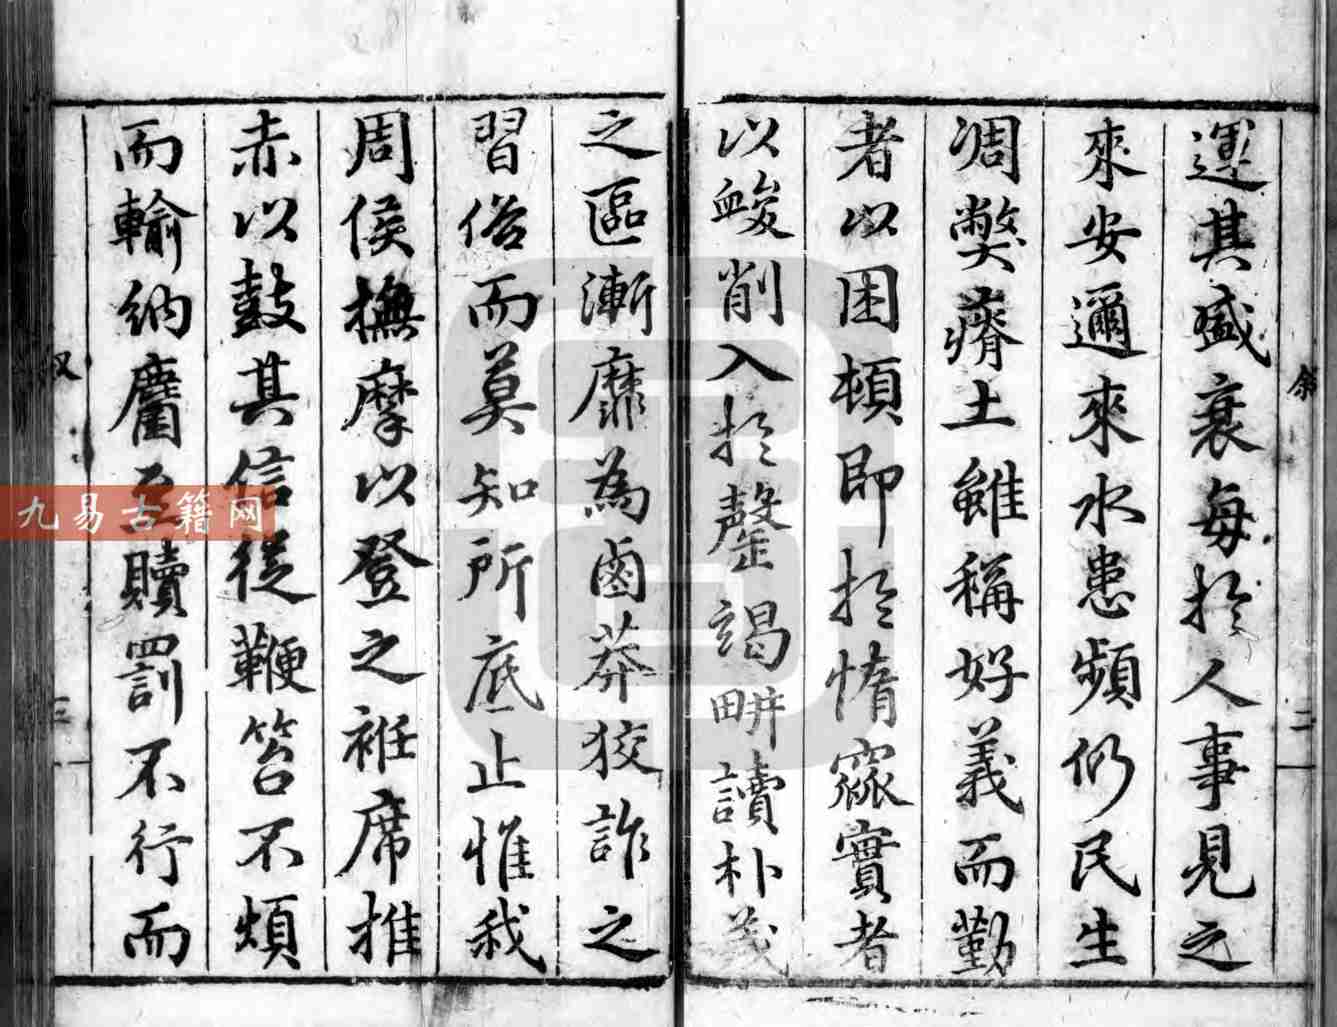 運其盛衰每於人事見之
來安邇來水患頻仍民生
凋獘瘠土雖稱好義而勤
者以困頓即於惰窳實者
以朘削入於罄竭畊讀朴茂
之區漸靡為鹵莽狡詐之
習俗而莫知所底止惟我
周侯撫摩以登之袵席推
赤以鼓其信從鞭笞不煩
而輸納麕至贖罰不行而
叙
二
三
九易古籍网